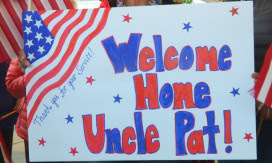 Thank you for your Service!
Welcome
Home
Uncle Pat!